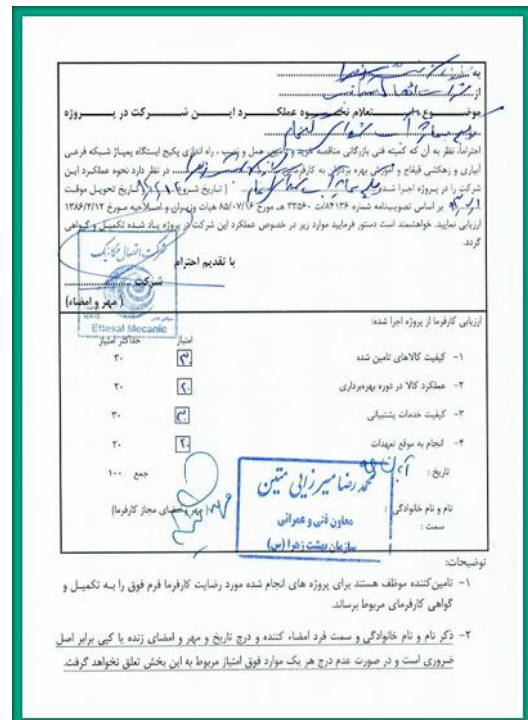 به سازمان بهشت زهرا
از شرکت اتصال مکانیک
موضوع: استعلام نحوه عملکرد این شرکت در پروژه
احتراما، نظر به آن که کمیته فنی بازرگانی مناقصه خرید و تامین، حمل و نصب، راه اندازی پکیج ایستگاه پمپاژ شبکه فرعی
آبیاری و زهکشی فیفاج و آموزش بهره برداری به کارفرما در نظر دارد نحوه عملکرد این
شرکت را در پروژه اجرا شده تاریخ شروع تاریخ تحویل موقت
بر اساس تصویبنامه شماره ۸۴۱۳۶/ت ۳۳۵۶۰ هـ مورخ ۸۵/۰۷/۱۶ هیات وزیران و اصلاحیه مورخ ۱۳۸۶/۲/۱۲
ارزیابی نمایید. خواهشمند است دستور فرمایید موارد زیر در خصوص عملکرد این شرکت در پروژه یاد شده تکمیل و گواهی
گردد.
با تقدیم احترام
شرکت اتصال مکانیک
شرکت
(مهر و امضاء)
Ettesal Mecanic
ارزیابی کارفرما از پروژه اجرا شده:
امتیاز حداکثر امتیاز
۱- کیفیت کالاهای تامین شده ۳۰ ۳۰
۲- عملکرد کالا در دوره بهره‌برداری ۲۰ ۲۰
۳- کیفیت خدمات پشتیبانی ۳۰ ۳۰
۴- انجام به موقع تعهدات ۲۰ ۲۰
تاریخ: جمع ۱۰۰
نام و نام خانوادگی: (مهر و امضای مجاز کارفرما)
سمت:
محمدرضا میرزایی متین
معاون فنی و عمرانی
سازمان بهشت زهرا (س)
توضیحات:
۱- تامین کننده موظف هستند برای پروژه های انجام شده مورد رضایت کارفرما فرم فوق را به تکمیل و
گواهی کارفرمای مربوط برساند.
۲- ذکر نام و نام خانوادگی و سمت فرد امضاء کننده و درج تاریخ و مهر و امضای زنده یا کپی برابر اصل
ضروری است و در صورت عدم درج هر یک موارد فوق امتیاز مربوط به این بخش تعلق نخواهد گرفت.